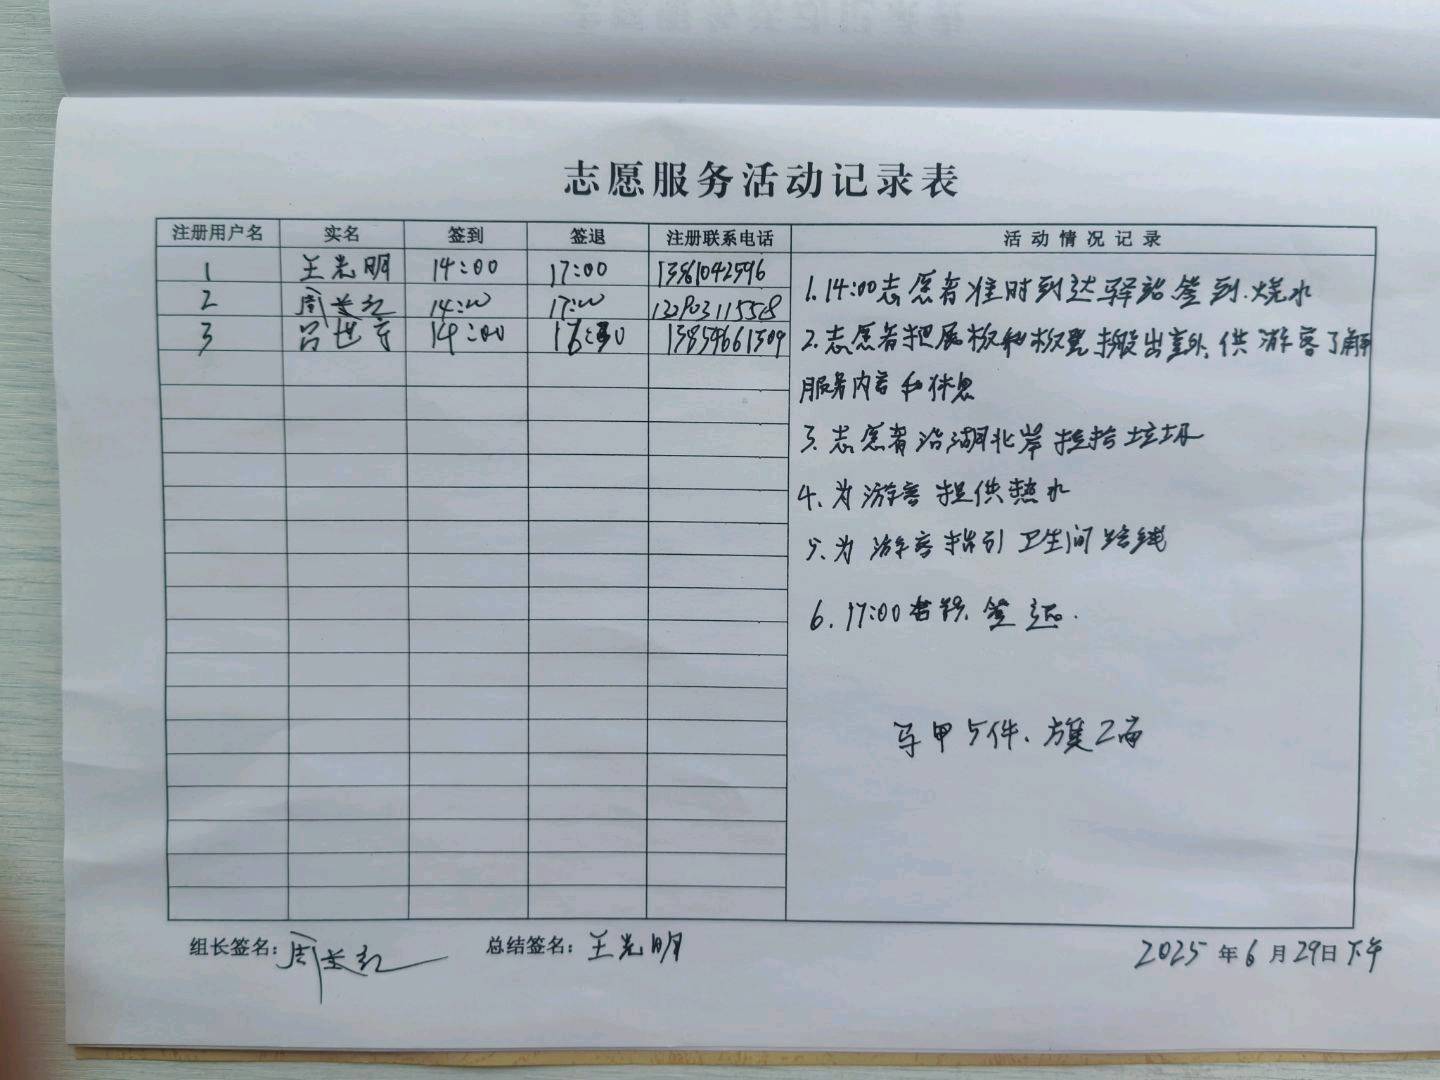 志愿服务活动记录表
注册用户名 实名 签到 签退 注册联系电话 活动情况记录
1 王光明 14:00 17:00
2 周长红 14:00 17:00
3 吕世 14:00 16:30 13854661309
1.14:00志愿者准时到达驿站签到.烧水
2.志愿者把展板和板凳搬出室外、供游客了解
服务内容和休息
3.志愿者沿湖北岸捡拾垃圾
4、为游客提供热水
5、为游客指引卫生间路线
6.17:00 签退.
马甲5件、旗2面
组长签名:周长红 总结签名:王光明 2025年6月29日下午